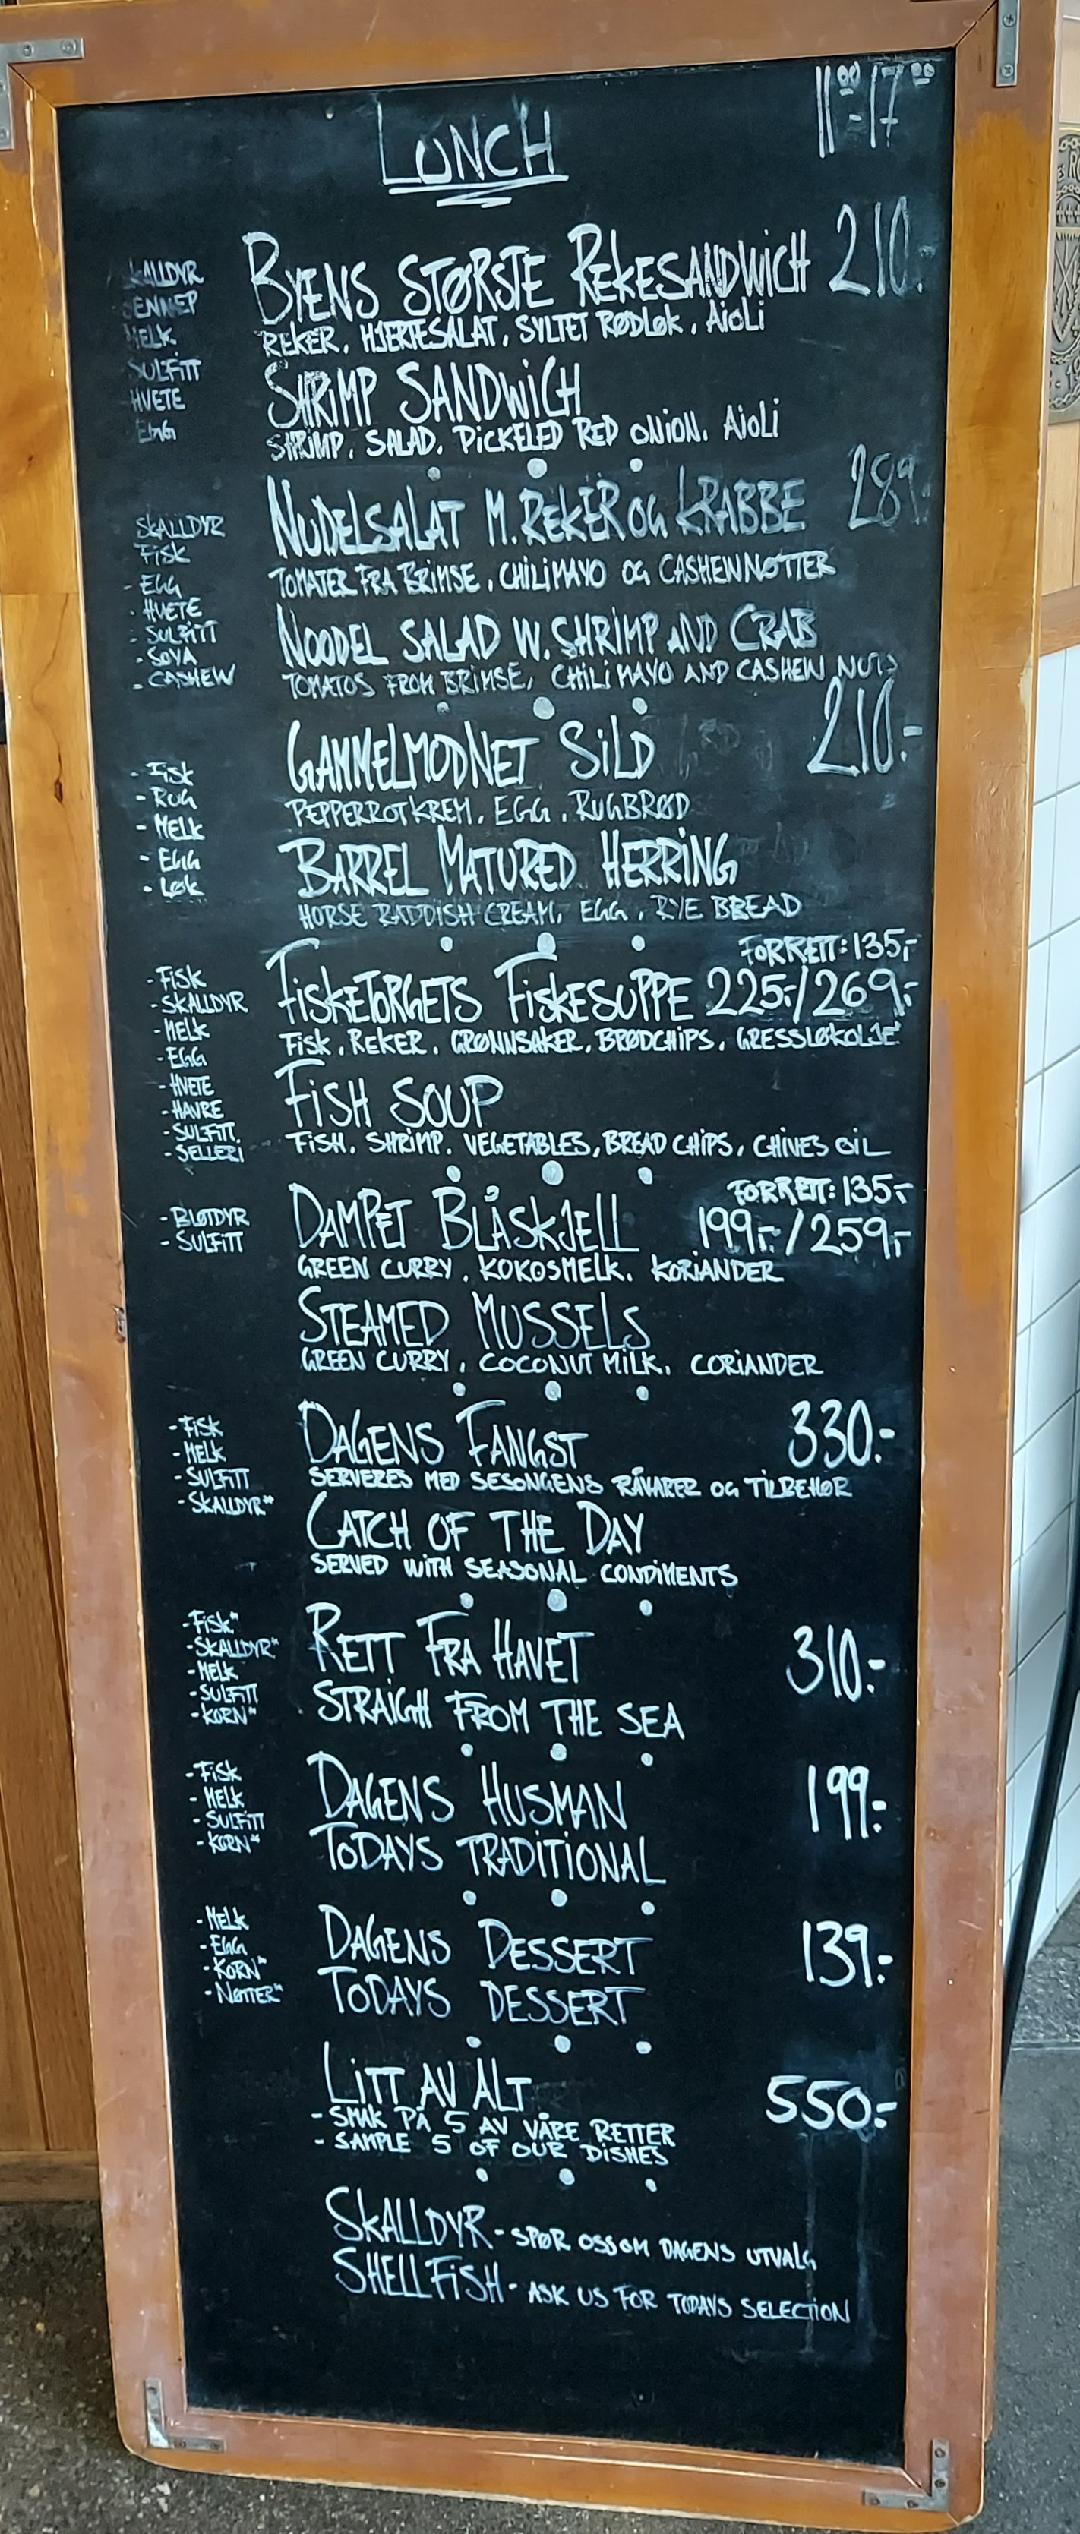 LUNCH
11⁰⁰-17⁰⁰
BYENS STØRSTE REKESANDWICH 210.-
REKER, HJERTESALAT, SYLTET RØDLØK, AIOLI
SHRIMP SANDWICH
SHRIMP, SALAD, PICKELED RED ONION, AIOLI
SKALLDYR
SENNEP
MELK
SULFITT
HVETE
EGG
NUDELSALAT M. REKER OG KRABBE 289.-
TOMATER FRA BRIMSE, CHILIMAYO OG CASHEWNØTTER
NOODEL SALAD W. SHRIMP AND CRAB
TOMATOS FROM BRIMSE, CHILI MAYO AND CASHEW NUTS
SKALLDYR
FISK
- EGG
- HVETE
- SULFITT
- SOYA
- CASHEW
GAMMELMODNET SILD 210.-
PEPPERROTKREM, EGG, RUGBRØD
BARREL MATURED HERRING
HORSE RADDISH CREAM, EGG, RYE BREAD
- FISK
- RUG
- MELK
- EGG
- LØK
FORRETT: 135,-
FISKETORGETS FISKESUPPE 225,-/269,-
FISK, REKER, GRØNNSAKER, BRØDCHIPS, GRESSLØKOLJE
FISH SOUP
FISH, SHRIMP, VEGETABLES, BREAD CHIPS, CHIVES OIL
- FISK
- SKALLDYR
- MELK
- EGG
- HVETE
- HAVRE
- SULFITT
- SELLERI
FORRETT: 135,-
DAMPET BLÅSKJELL 199,-/259,-
GREEN CURRY, KOKOSMELK, KORIANDER
STEAMED MUSSELS
GREEN CURRY, COCONUT MILK, CORIANDER
- BLØTDYR
- SULFITT
DAGENS FANGST 330.-
SERVERES MED SESONGENS RÅVARER OG TILBEHØR
CATCH OF THE DAY
SERVED WITH SEASONAL CONDIMENTS
- FISK
- MELK
- SULFITT
- SKALLDYR*
RETT FRA HAVET 310.-
STRAIGH FROM THE SEA
- FISK*
- SKALLDYR*
- MELK
- SULFITT
- KORN*
DAGENS HUSMAN 199.-
TODAYS TRADITIONAL
- FISK
- MELK
- SULFITT
- KORN*
DAGENS DESSERT 139.-
TODAYS DESSERT
- MELK
- EGG
- KORN*
- NØTTER*
LITT AV ALT 550.-
- SMAK PÅ 5 AV VÅRE RETTER
- SAMPLE 5 OF OUR DISHES
SKALLDYR - SPØR OSS OM DAGENS UTVALG
SHELLFISH - ASK US FOR TODAYS SELECTION